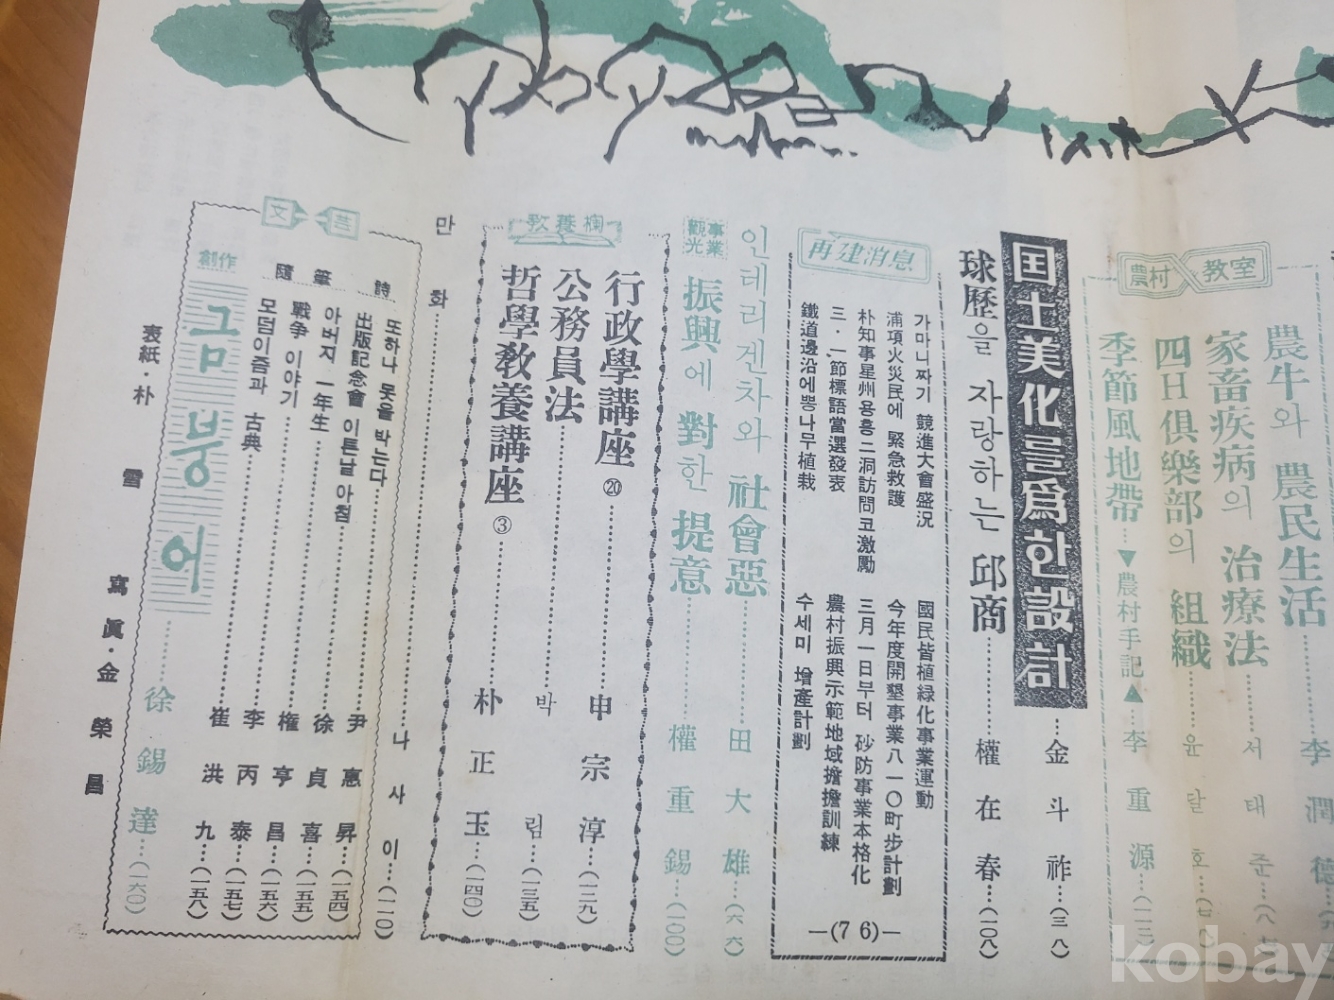 農村 教室
農牛와 農民生活……李潤德…
家畜疾病의 治療法……서태준…(八七)
四H俱樂部의 組織……윤달호…
季節風地帶…▼農村手記▲…李重源…(一一三)
国土美化를爲한設計…金斗祚…(三八)
球歷을 자랑하는 邱商……權在春…(一〇八)
再建消息
가마니짜기 競進大會盛況
浦項火災民에 緊急救護
朴知事星州용흥二洞訪問코激勵
三・一節標語當選發表
鐵道邊沿에뽕나무植栽
國民皆植緑化事業運動
今年度開墾事業八一〇町步計劃
三月一日부터 砂防事業本格化
農村振興示範地域擔擔訓練
수세미 增産計劃
—(76)—
인테리겐차와 社會惡……田大雄…(六六)
觀光事業 振興에 對한 提意……權重錫…(一〇〇)
教養欄
行政學講座⑳……申宗淳…(一二九)
公務員法……박림…(一三五)
哲學教養講座③……朴正玉…(一四〇)
만화……나사이…(一一〇)
文芸
詩 또하나 못을 박는다……尹惠昇…(一五四)
隨筆 出版記念會 이튿날 아침…徐貞喜…(一五五)
아버지 一年生……權亨昌…(一五六)
戰争 이야기……李丙泰…(一五七)
모덤이즘과 古典……崔洪九…(一五八)
創作 금붕어……徐錫達…(一六〇)
表紙・朴 雪
寫眞・金榮昌
kobay